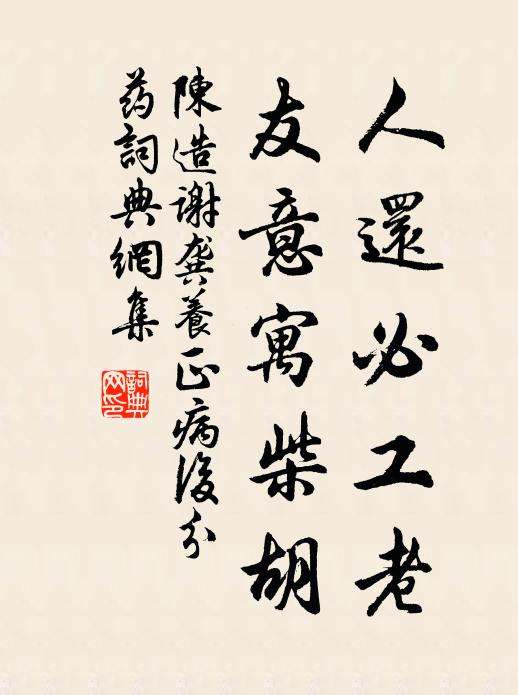 人還必工老
友意寓柴胡
陳造謝龔養正病後分
药詞典網集
詞典
网印